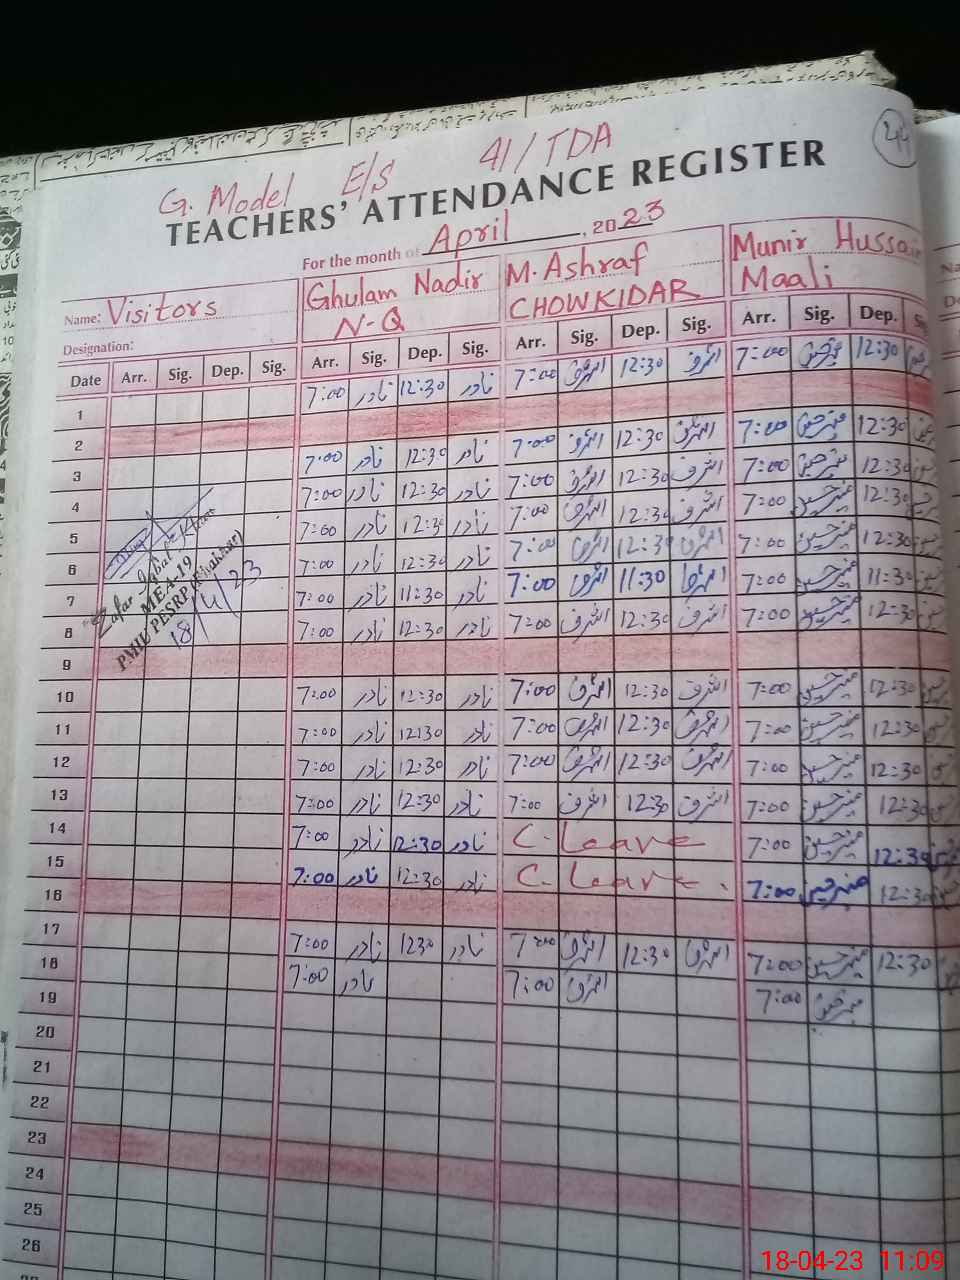 44
G. Model E/S 41/TDA
TEACHERS' ATTENDANCE REGISTER
For the month of April, 2023
Name: Visitors Ghulam Nadir M. Ashraf Munir Hussain
Designation: N-Q CHOWKIDAR Maali
Date Arr. Sig. Dep. Sig. Arr. Sig. Dep. Sig. Arr. Sig. Dep. Sig. Arr. Sig. Dep.
1 7:00 نادر 12:30 نادر 7:00 اشرف 12:30 اشرف 7:00 منیر حسین 12:30
2
3 7:00 نادر 12:30 نادر 7:00 اشرف 12:30 اشرف 7:00 منیر حسین 12:30
4 7:00 نادر 12:30 نادر 7:00 اشرف 12:30 اشرف 7:00 منیر حسین 12:30
5 7:00 نادر 12:30 نادر 7:00 اشرف 12:30 اشرف 7:00 منیر حسین 12:30
6 7:00 نادر 12:30 نادر 7:00 اشرف 12:30 اشرف 7:00 منیر حسین 12:30
7 7:00 نادر 11:30 نادر 7:00 اشرف 11:30 اشرف 7:00 منیر حسین 11:30
8 7:00 نادر 12:30 نادر 7:00 اشرف 12:30 اشرف 7:00 منیر حسین 12:30
Zafar Iqbal
MEA-19
PMIU PESRP (Bhakkar)
18/4/23
9
10 7:00 نادر 12:30 نادر 7:00 اشرف 12:30 اشرف 7:00 منیر حسین 12:30
11 7:00 نادر 12:30 نادر 7:00 اشرف 12:30 اشرف 7:00 منیر حسین 12:30
12 7:00 نادر 12:30 نادر 7:00 اشرف 12:30 اشرف 7:00 منیر حسین 12:30
13 7:00 نادر 12:30 نادر 7:00 اشرف 12:30 اشرف 7:00 منیر حسین 12:30
14 7:00 نادر 12:30 نادر C. Leave 7:00 منیر حسین 12:30
15 7:00 نادر 12:30 نادر C. Leave. 7:00 منیر حسین 12:30
16
17 7:00 نادر 1230 نادر 7:00 اشرف 12:30 اشرف 7:00 منیر حسین 12:30
18 7:00 نادر 7:00 اشرف 7:00 منیر حسین
19
20
21
22
23
24
25
26
18-04-23 11:09